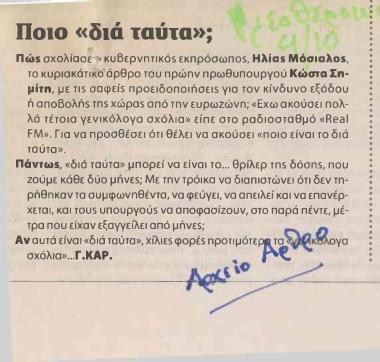 Ελευθεροτυπία
4/10
Ποιο «διά ταύτα»;
Πώς σχολίασε ο κυβερνητικός εκπρόσωπος, Ηλίας Μόσιαλος,
το κυριακάτικο άρθρο του πρώην πρωθυπουργού Κώστα Ση-
μίτη, με τις σαφείς προειδοποιήσεις για τον κίνδυνο εξόδου
ή αποβολής της χώρας από την ευρωζώνη; «Εχω ακούσει πολ-
λά τέτοια γενικόλογα σχόλια» είπε στο ραδιοσταθμό «Real
FM». Για να προσθέσει ότι θέλει να ακούσει «ποιο είναι το διά
ταύτα».
Πάντως, «διά ταύτα» μπορεί να είναι το... θρίλερ της δόσης, που
ζούμε κάθε δύο μήνες; Με την τρόικα να διαπιστώνει ότι δεν τη-
ρήθηκαν τα συμφωνηθέντα, να φεύγει, να απειλεί και να επανέρ-
χεται, και τους υπουργούς να αποφασίζουν, στο παρά πέντε, μέ-
τρα που είχαν εξαγγείλει από μήνες;
Αν αυτά είναι «διά ταύτα», χίλιες φορές προτιμότερα τα «γενικόλογα
σχόλια»...Γ.ΚΑΡ.
Αρχείο Αρθρο